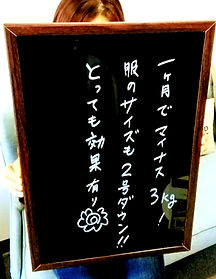 一ヶ月でマイナス3kg!
服のサイズも2号ダウン!!
とっても効果有り